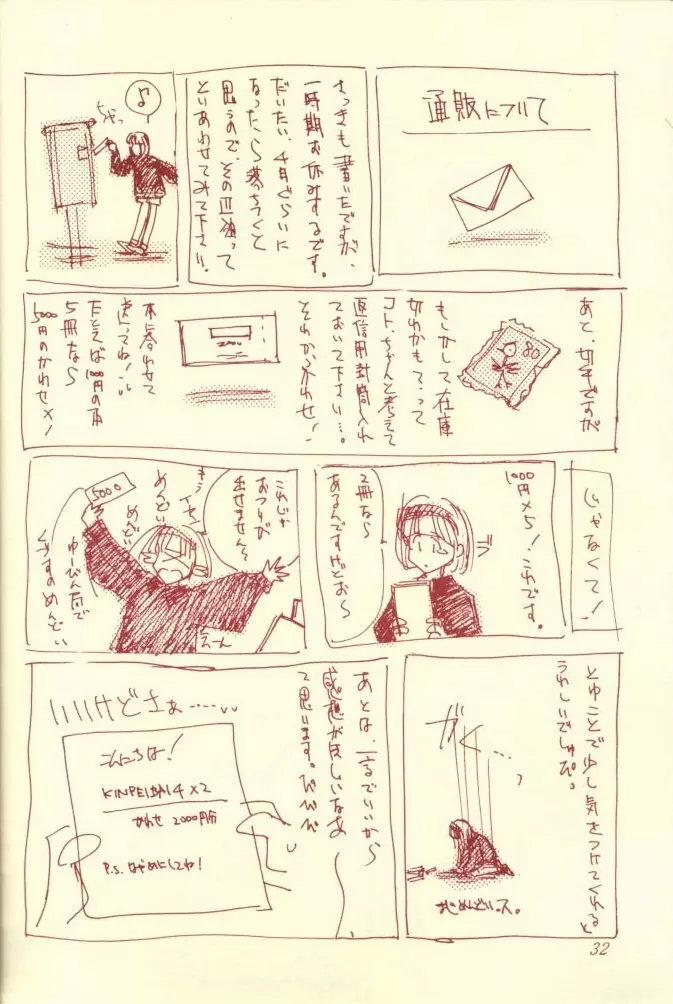 通販について
さっきも書いたですが、
一時期お休みするです。
だいたい、4月ぐらいに
なったら落ちつくと
思うので、その辺狙って
といあわせてみて下さい。
ちゃっ
♪
あと、切手ですが
80
もしかして在庫
切れかもってって
コト、ちゃんと考えて
返信用封筒入れ
ておいて下さい…。
それからかわせ!
2000
本に合わせて
送ってね!
たとえば1000円の本
5冊なら
5000円のかわせ×!
じゃなくて!
1000
円×5!これです。
2冊なら
あるんですけどお~
これじゃ
おつりが
出せません~
もう
めんどい
めんどい
5000
ゆーびん局で
くずすのめんどい
えーん
とゆことで少し気をつけてくれると
うれしいでしゅぴ。
がくー…
あとは、一言でいいから
感想がほしいなあ
て思います。ぴぴぴ
いいけどさぁ……
こんにちは!
KINPEI BAI 4 ×2
かわせ 2000円分
P.S. はやめにしてね!
32